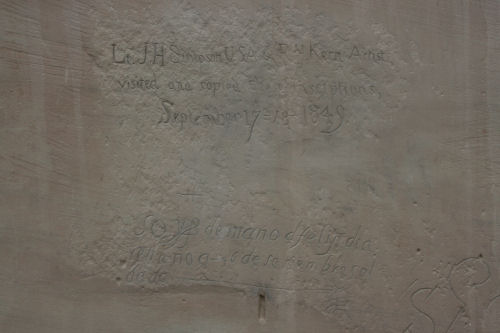 Lt. J H Simpson USA & R H Kern Artist,
visited and copied these inscriptions,
September 17th 18th 1849
Soy de mano d felipe d a
rellano a 16 de setiembre sol
dado